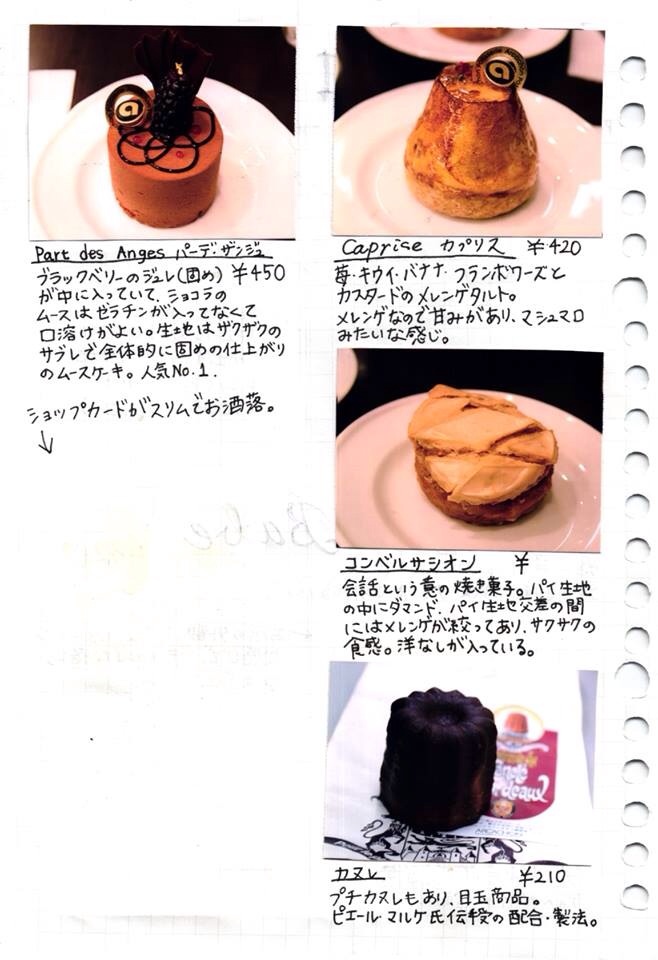 Part des Anges パーデ・ザンジュ
ブラックベリーのジュレ(固め) ¥450
が中に入っていて、ショコラの
ムースはゼラチンが入ってなくて
口溶けがよい。生地はザクザクの
サブレで全体的に固めの仕上がり
のムースケーキ。人気No.1.
ショップカードがスリムでお洒落。
↓
Caprise カプリス ¥420
苺・キウイ・バナナ・フランボワーズと
カスタードのメレンゲタルト。
メレンゲなので甘みがあり、マシュマロ
みたいな感じ。
コンベルサシオン ¥
会話という意の焼き菓子。パイ生地
の中にダマンド、パイ生地交差の間
にはメレンゲが絞ってあり、サクサクの
食感。洋なしが入っている。
カヌレ ¥210
プチカヌレもあり、目玉商品。
ピエール・マルケ氏伝授の配合・製法。
Babe